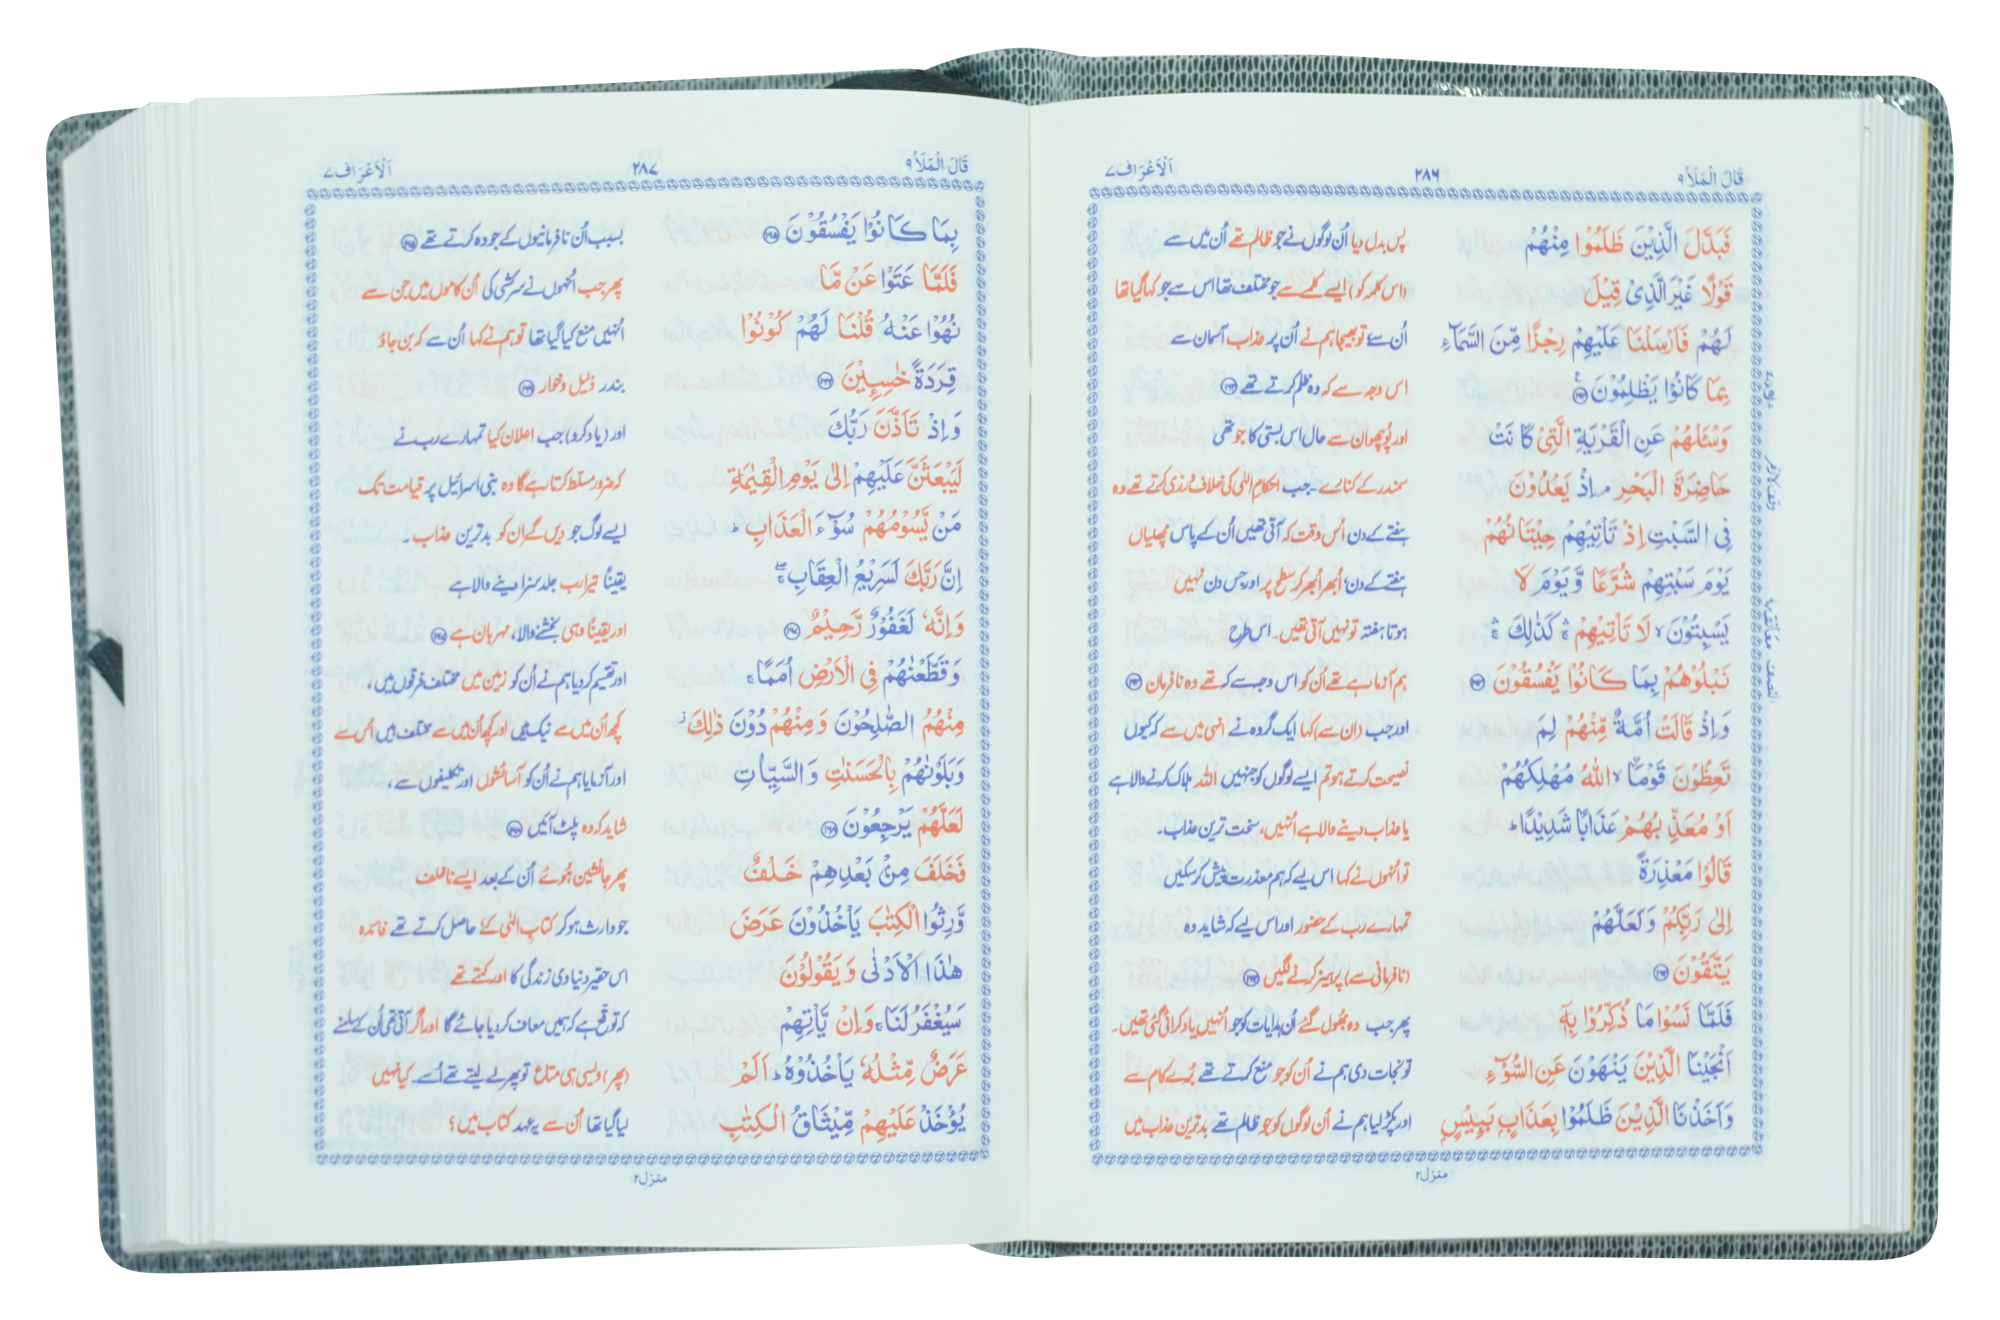 قَالَ الْمَلَاُ ٩
٢٨٦
اَلْاَعْرَاف ٧
فَبَدَّلَ الَّذِيْنَ ظَلَمُوْا مِنْهُمْ
پس بدل دیا اُن لوگوں نے جو ظالم تھے اُن میں سے
قَوْلًا غَيْرَ الَّذِىْ قِيْلَ
(اس کلمہ کو) ایسے کلمے سے جو مختلف تھا اس سے جو کہا گیا تھا
لَهُمْ فَاَرْسَلْنَا عَلَيْهِمْ رِجْزًا مِّنَ السَّمَآءِ
اُن سے تو بھیجا ہم نے اُن پر عذاب آسمان سے
بِمَا كَانُوْا يَظْلِمُوْنَ ۝١٦٢
اس وجہ سے کہ وہ ظلم کرتے تھے ۝١٦٢
وَسْـَٔلْهُمْ عَنِ الْقَرْيَةِ الَّتِىْ كَانَتْ
اور پُوچھو ان سے حال اس بستی کا جو تھی
حَاضِرَةَ الْبَحْرِ ۘ اِذْ يَعْدُوْنَ
سمندر کے کنارے۔ جب احکامِ الٰہی کی خلاف ورزی کرتے تھے وہ
فِى السَّبْتِ اِذْ تَاْتِيْهِمْ حِيْتَانُهُمْ
ہفتے کے دن اُس وقت کہ آتی تھیں اُن کے پاس مچھلیاں
يَوْمَ سَبْتِهِمْ شُرَّعًا وَّيَوْمَ لَا
ہفتے کے دن، اُبھر اُبھر کر سطح پر اور جس دن نہیں
يَسْبِتُوْنَ ۙ لَا تَاْتِيْهِمْ ۛ كَذٰلِكَ ۛ
ہوتا ہفتہ تو نہیں آتی تھیں۔ اس طرح
نَبْلُوْهُمْ بِمَا كَانُوْا يَفْسُقُوْنَ ۝١٦٣
ہم آزما رہے تھے اُن کو اس وجہ سے کہ تھے وہ نافرمان ۝١٦٣
وَاِذْ قَالَتْ اُمَّةٌ مِّنْهُمْ لِمَ
اور جب (ان سے) کہا ایک گروہ نے انہی میں سے کہ کیوں
تَعِظُوْنَ قَوْمَا ۙ اللّٰهُ مُهْلِكُهُمْ
نصیحت کرتے ہو تم ایسے لوگوں کو جنہیں اللہ ہلاک کرنے والا ہے
اَوْ مُعَذِّبُهُمْ عَذَابًا شَدِيْدًا ؕ
یا عذاب دینے والا ہے اُنہیں، سخت ترین عذاب۔
قَالُوْا مَعْذِرَةً
تو اُنہوں نے کہا اس لیے کہ ہم معذرت پیش کر سکیں
اِلٰى رَبِّكُمْ وَلَعَلَّهُمْ
تمہارے رب کے حضور اور اس لیے کہ شاید وہ
يَتَّقُوْنَ ۝١٦٤
(نافرمانی سے) پرہیز کرنے لگیں ۝١٦٤
فَلَمَّا نَسُوْا مَا ذُكِّرُوْا بِهٖٓ
پھر جب وہ بُھول گئے اُن ہدایات کو جو اُنہیں یاد کرائی گئی تھیں۔
اَنْجَيْنَا الَّذِيْنَ يَنْهَوْنَ عَنِ السُّوْٓءِ
تو نجات دی ہم نے اُن کو جو منع کرتے تھے بُرے کام سے
وَاَخَذْنَا الَّذِيْنَ ظَلَمُوْا بِعَذَابٍۭ بَىِٕيْسٍۭ
اور پکڑ لیا ہم نے اُن لوگوں کو جو ظالم تھے بدترین عذاب میں
منزل ٢
قَالَ الْمَلَاُ ٩
٢٨٧
اَلْاَعْرَاف ٧
بِمَا كَانُوْا يَفْسُقُوْنَ ۝١٦٥
بسبب اُن نافرمانیوں کے جو وہ کرتے تھے ۝١٦٥
فَلَمَّا عَتَوْا عَنْ مَّا
پھر جب اُنہوں نے سرکشی کی اُن کاموں میں جن سے
نُهُوْا عَنْهُ قُلْنَا لَهُمْ كُوْنُوْا
اُنہیں منع کیا گیا تھا تو ہم نے کہا اُن سے کہ بن جاؤ
قِرَدَةً خٰسِـِٕيْنَ ۝١٦٦
بندر ذلیل و خوار ۝١٦٦
وَاِذْ تَاَذَّنَ رَبُّكَ
اور (یاد کرو) جب اعلان کیا تمہارے رب نے
لَيَبْعَثَنَّ عَلَيْهِمْ اِلٰى يَوْمِ الْقِيٰمَةِ
کہ ضرور مسلط کرتا رہے گا وہ بنی اسرائیل پر قیامت تک
مَنْ يَّسُوْمُهُمْ سُوْٓءَ الْعَذَابِ ؕ
ایسے لوگ جو دیں گے اِن کو بدترین عذاب۔
اِنَّ رَبَّكَ لَسَرِيْعُ الْعِقَابِ ۖۚ
یقیناً تیرا رب جلد سزا دینے والا ہے
وَاِنَّهٗ لَغَفُوْرٌ رَّحِيْمٌ ۝١٦٧
اور یقیناً وہی بخشنے والا، مہربان ہے ۝١٦٧
وَقَطَّعْنٰهُمْ فِى الْاَرْضِ اُمَمًا ۚ
اور تقسیم کر دیا ہم نے اُن کو زمین میں مختلف فرقوں میں،
مِنْهُمُ الصّٰلِحُوْنَ وَمِنْهُمْ دُوْنَ ذٰلِكَ ؗ
کچھ اُن میں سے نیک ہیں اور کچھ اُن میں سے مختلف ہیں اُس سے
وَبَلَوْنٰهُمْ بِالْحَسَنٰتِ وَالسَّيِّاٰتِ
اور آزمایا ہم نے اُن کو آسائشوں اور تکلیفوں سے،
لَعَلَّهُمْ يَرْجِعُوْنَ ۝١٦٨
شاید کہ وہ پلٹ آئیں ۝١٦٨
فَخَلَفَ مِنْۢ بَعْدِهِمْ خَلْفٌ
پھر جانشین ہُوئے اُن کے بعد ایسے ناخلف
وَّرِثُوا الْكِتٰبَ يَاْخُذُوْنَ عَرَضَ
جو وارث ہو کر کتابِ الٰہی کے حاصل کرتے تھے فائدہ
هٰذَا الْاَدْنٰى وَيَقُوْلُوْنَ
اس حقیر دنیاوی زندگی کا اور کہتے تھے
سَيُغْفَرُ لَنَا ۚ وَاِنْ يَّاْتِهِمْ
کہ توقع ہے کہ ہمیں معاف کر دیا جائے گا اور اگر آتی تھی اُن کے سامنے
عَرَضٌ مِّثْلُهٗ يَاْخُذُوْهُ ؕ اَلَمْ
(پھر) ویسی ہی متاع تو پھر لے لیتے تھے اُسے کیا نہیں
يُؤْخَذْ عَلَيْهِمْ مِّيْثَاقُ الْكِتٰبِ
لیا گیا تھا اُن سے یہ عہد کتاب میں؟
منزل ٢